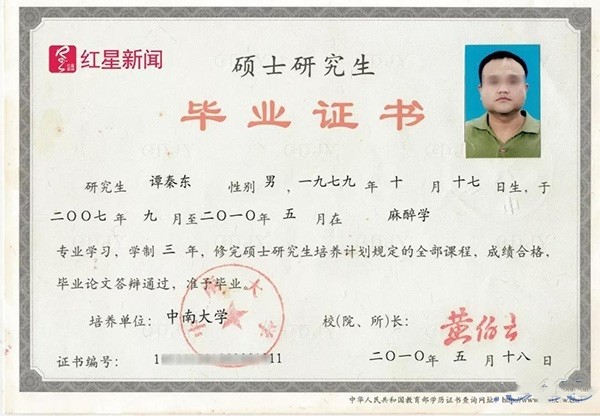 红星新闻
硕士研究生
毕业证书
研究生 谭秦东 性别 男，一九七九 年 十 月 十七 日生，于
二〇〇七 年 九 月至 二〇一〇 年 五 月在 麻醉学
专业学习，学制 三 年，修完硕士研究生培养计划规定的全部课程，成绩合格，
毕业论文答辩通过，准予毕业。
培养单位：中南大学 校(院、所)长：黄伯云
证书编号：1 11 二〇一〇 年 五 月 十八 日
中华人民共和国教育部学历证书查询网址：http://www.